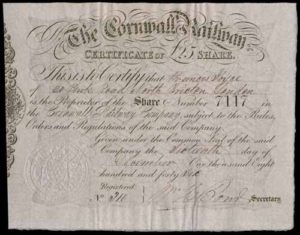 The Cornwall Railway
CERTIFICATE OF £25 SHARE.
This is to Certify that Frances
of Park Road North Brixton London
is the Proprietor of the Share Number 7117 in
the Cornwall Railway Company, subject to the Rules,
Orders and Regulations of the said Company.
Given under the Common Seal of the said
Company the day of
One thousand Eight
hundred and forty
Registered
No.
Wm Bond Secretary